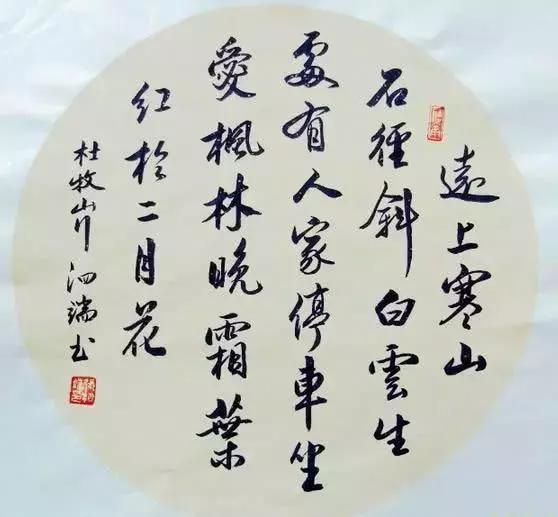 遠上寒山
石徑斜白雲生
處有人家停車坐
愛楓林晚霜葉
紅於二月花
杜牧山行 泗端书